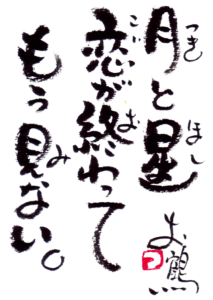 月と星
恋が終わって
もう見ない。
つき
ほし
こい
お
み